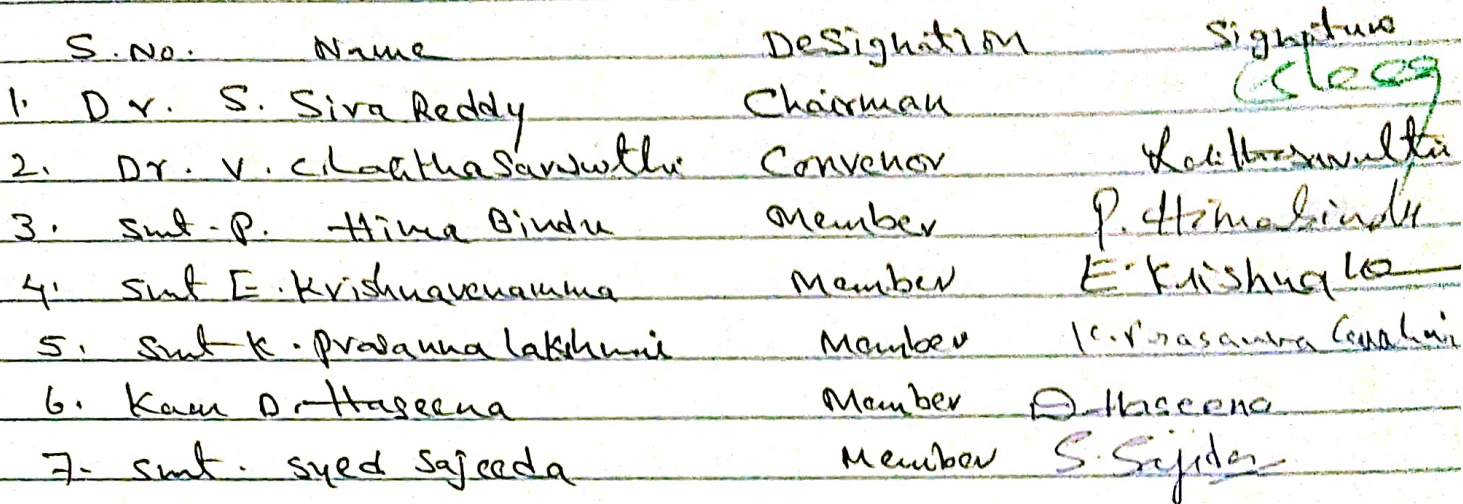 S.No. Name Designation Signature
1. Dr. S. Siva Reddy Chairman
2. Dr. V. C. Lalitha Saraswathi Convenor Lalithasaraswathi
3. Smt. P. Hima Bindu Member P. Himabindu
4. Smt E. Krishnavenamma Member E. Krishna
5. Smt K. Prasanna lakshmi Member K. Prasanna Lakshmi
6. Kum D. Haseena Member D. Haseena
7- Smt. Syed Sajeeda Member S. Sajida